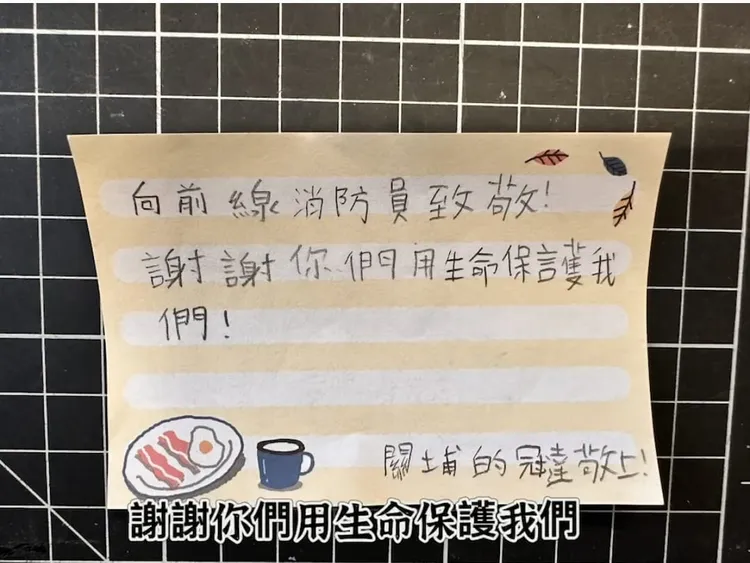 向前線消防員致敬!
謝謝你們用生命保護我
們!
關埔的冠達敬上!
謝謝你們用生命保護我們